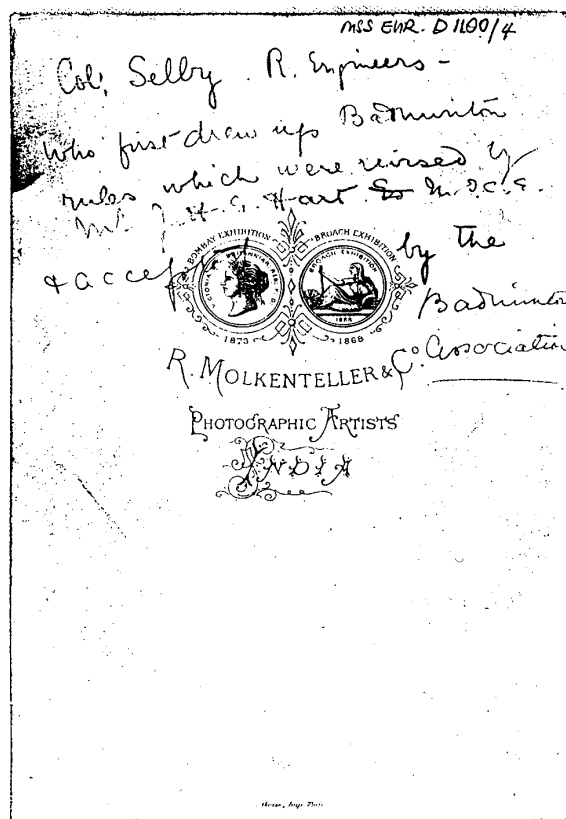 MSS EUR. D 1100/4
Col: Selby. R. Engineers -
Who first drew up Badminton
rules which were revised by
Mr. J. H. E. Hart M.I.C.E.
& accepted by the
Badminton
Association
BOMBAY EXHIBITION
BROACH EXHIBITION
BROACH EXHIBITION
1868
1873
1868
R. MOLKENTELLER & Co.
PHOTOGRAPHIC ARTISTS
INDIA